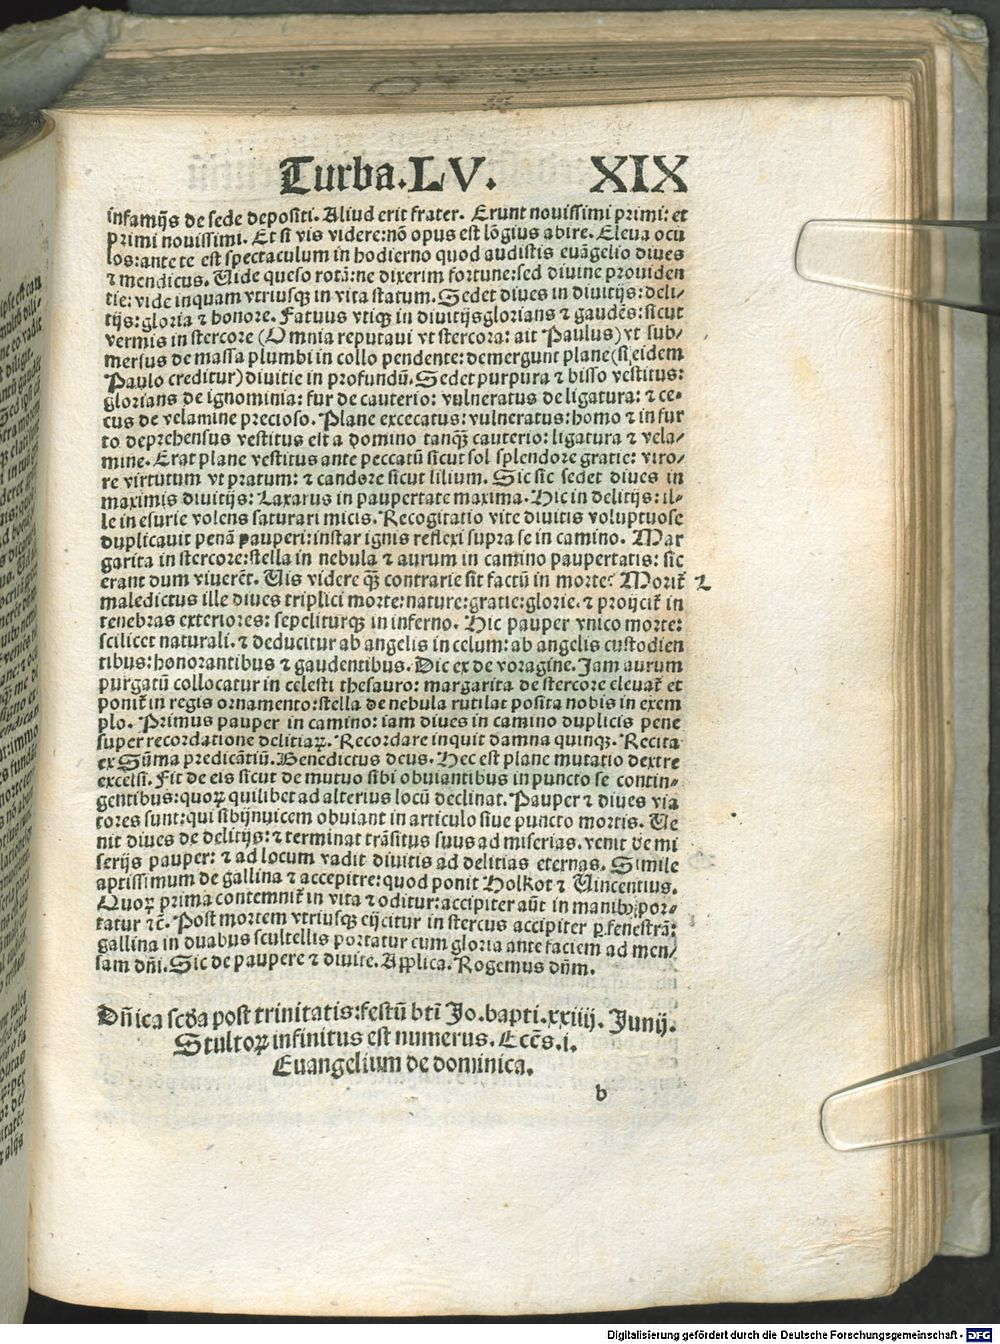 Turba. LV. XIX
infamijs de sede depositi. Aliud erit frater. Erunt nouissimi primi: et
primi nouissimi. Et si vis videre: nō opus est lōgius abire. Eleua ocu
los: ante te est spectaculum in hodierno quod audistis euāgelio diues
⁊ mendicus. Vide queso rotā: ne dixerim fortune: sed diuine prouiden
tie: vide inquam vtriusqꝫ in vita statum. Sedet diues in diuitijs: deli-
tijs: gloria ⁊ honore. Fatuus vtiqꝫ in diuitijs glorians ⁊ gaudēs: sicut
vermis in stercore (Omnia reputaui vt stercora: ait Paulus) vt sub-
mersus de massa plumbi in collo pendente: demergunt plane (si eidem
Paulo creditur) diuitie in profundū. Sedet purpura ⁊ bisso vestitus:
glorians de ignominia: fur de cauterio: vulneratus de ligatura: ⁊ ce-
cus de velamine precioso. Plane excecatus: vulneratus: homo ⁊ in fur
to deprehensus vestitus est a domino tanqꝫ cauterio: ligatura ⁊ vela-
mine. Erat plane vestitus ante peccatū sicut sol splendore gratie: viro-
re virtutum vt pratum: ⁊ candore sicut lilium. Sic sic sedet diues in
maximis diuitijs: Lazarus in paupertate maxima. Hic in delitijs: il-
le in esurie volens saturari micis. Recogitatio vite diuitis voluptuose
duplicauit penā pauperi: instar ignis reflexi supra se in camino. Mar
garita in stercore: stella in nebula ⁊ aurum in camino paupertatis: sic
erant dum viuerēt. Vis videre qꝫ contrarie sit factū in morte? Morit᷑ L
maledictus ille diues triplici morte: nature: gratie: glorie. ⁊ proijcit᷑ in
tenebras exteriores: sepeliturqꝫ in inferno. Hic pauper vnico morte:
scilicet naturali. ⁊ deducitur ab angelis in celum: ab angelis custodien
tibus: honorantibus ⁊ gaudentibus. Dic ex de voragine. Jam aurum
purgatū collocatur in celesti thesauro: margarita de stercore eleuat᷑ et
ponit᷑ in regis ornamento: stella de nebula rutilat posita nobis in exem
plo. Primus pauper in camino: iam diues in camino duplicis pene
super recordatione delitiaꝝ. Recordare inquit damna quinqꝫ. Recita
ex Sūma predicātiū. Benedictus deus. Hec est plane mutatio dextre
excelsi. Fit de eis sicut de mutuo sibi obuiantibus in puncto se contin-
gentibus: quoꝝ quilibet ad alterius locū declinat. Pauper ⁊ diues via
tores sunt: qui sibijnuicem obuiant in articulo siue puncto mortis. Ue
nit diues de delitijs: ⁊ terminat trāsitus suus ad miserias. venit de mi
serijs pauper: ⁊ ad locum vadit diuitis ad delitias eternas. Simile
aptissimum de gallina ⁊ accipitre: quod ponit Holkot ⁊ Vincentius.
Quoꝝ prima contemnit᷑ in vita ⁊ oditur: accipiter aūt in manibꝰ por-
tatur ⁊c̄. Post mortem vtriusqꝫ eijcitur in stercus accipiter ꝑ fenestrā:
gallina in duabus scultellis portatur cum gloria ante faciem ad men-
sam dn̄i. Sic de paupere ⁊ diuite. Applica. Rogemus dn̄m.
Dn̄ica scd̄a post trinitatis: festū bt̄i Jo. bapti. xxiiij. Junij.
Stultoꝝ infinitus est numerus. Eccēs. i.
Euangelium de dominica.
b
Digitalisierung gefördert durch die Deutsche Forschungsgemeinschaft - DFG